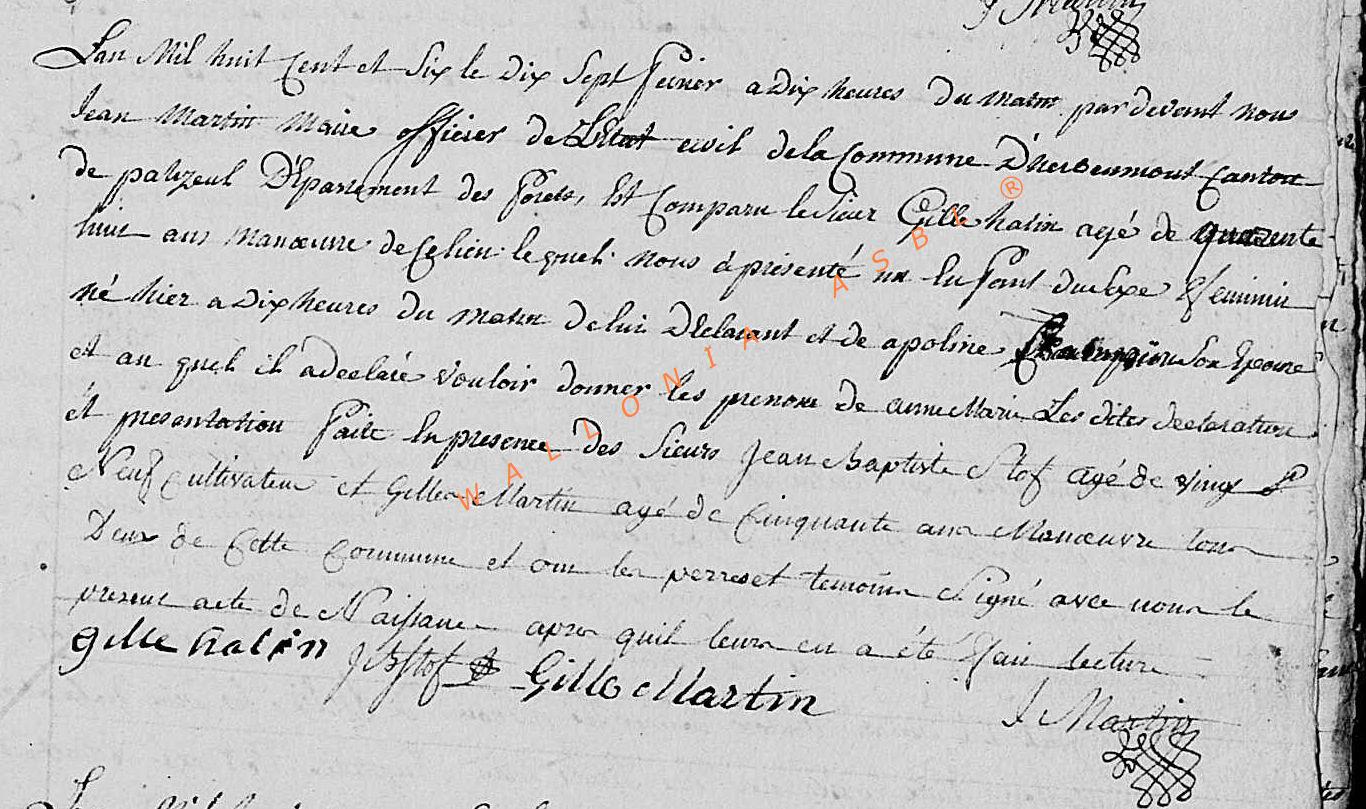 J Martin
Lan Mil huit Cent et Six le Dix Sept fevrier a Dix heures du matin par devant nous
Jean Martin Maire officier de L'Etat civil de la Commune D'herbeumont Canton
de palizeul Département des forets, Est Comparu le Sieur Gille halin agé de quarente
huit ans manœuvre de Ce lieu lequel nous à présenté un Enfant du Sexe feminin
né hier a Dix heures du matin de lui Déclarant et de apoline Son Epouse
et au quel il a declaré vouloir donner les prenom de anne Marie Les dites declaration
et presentation faite En presence des Sieurs Jean Baptiste Stof agé de vingt
Neuf cultivateur et Gilles Martin agé de Cinquante ans Manœuvre tous
Deux de Cette Commune et ont les et temoins Signé avec nous le
present acte de Naissance apres quil leurs en a été fait lecture
gille halin JBStof Gille Martin
J Martin
WALLONIA ASBL ®